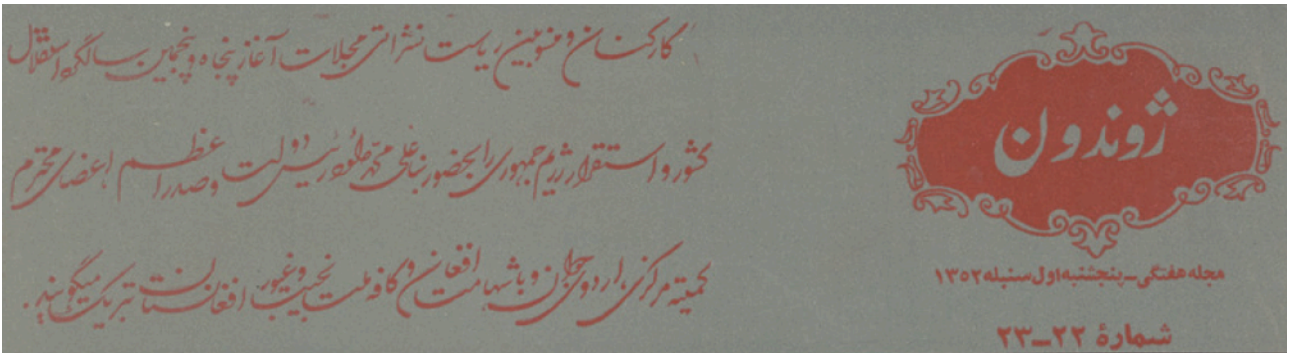 ژوندون
مجله هفتگی - پنجشنبه اول سنبله ۱۳۵۲
شمارهٔ ۲۲-۲۳
کارکنان و منسوبین ریاست نشراتی مجلات آغاز پنجاه و پنجمین سالگرد استقلال
کشور و استقرار رژیم جمهوری را بحضور ښاغلی محمد داؤد رئیس دولت و صدراعظم اعضای محترم
کمیته مرکزی، اردوی جوان و با شهامت افغان و کافه ملت نجیب و غیور افغانستان تبریک میگویند.